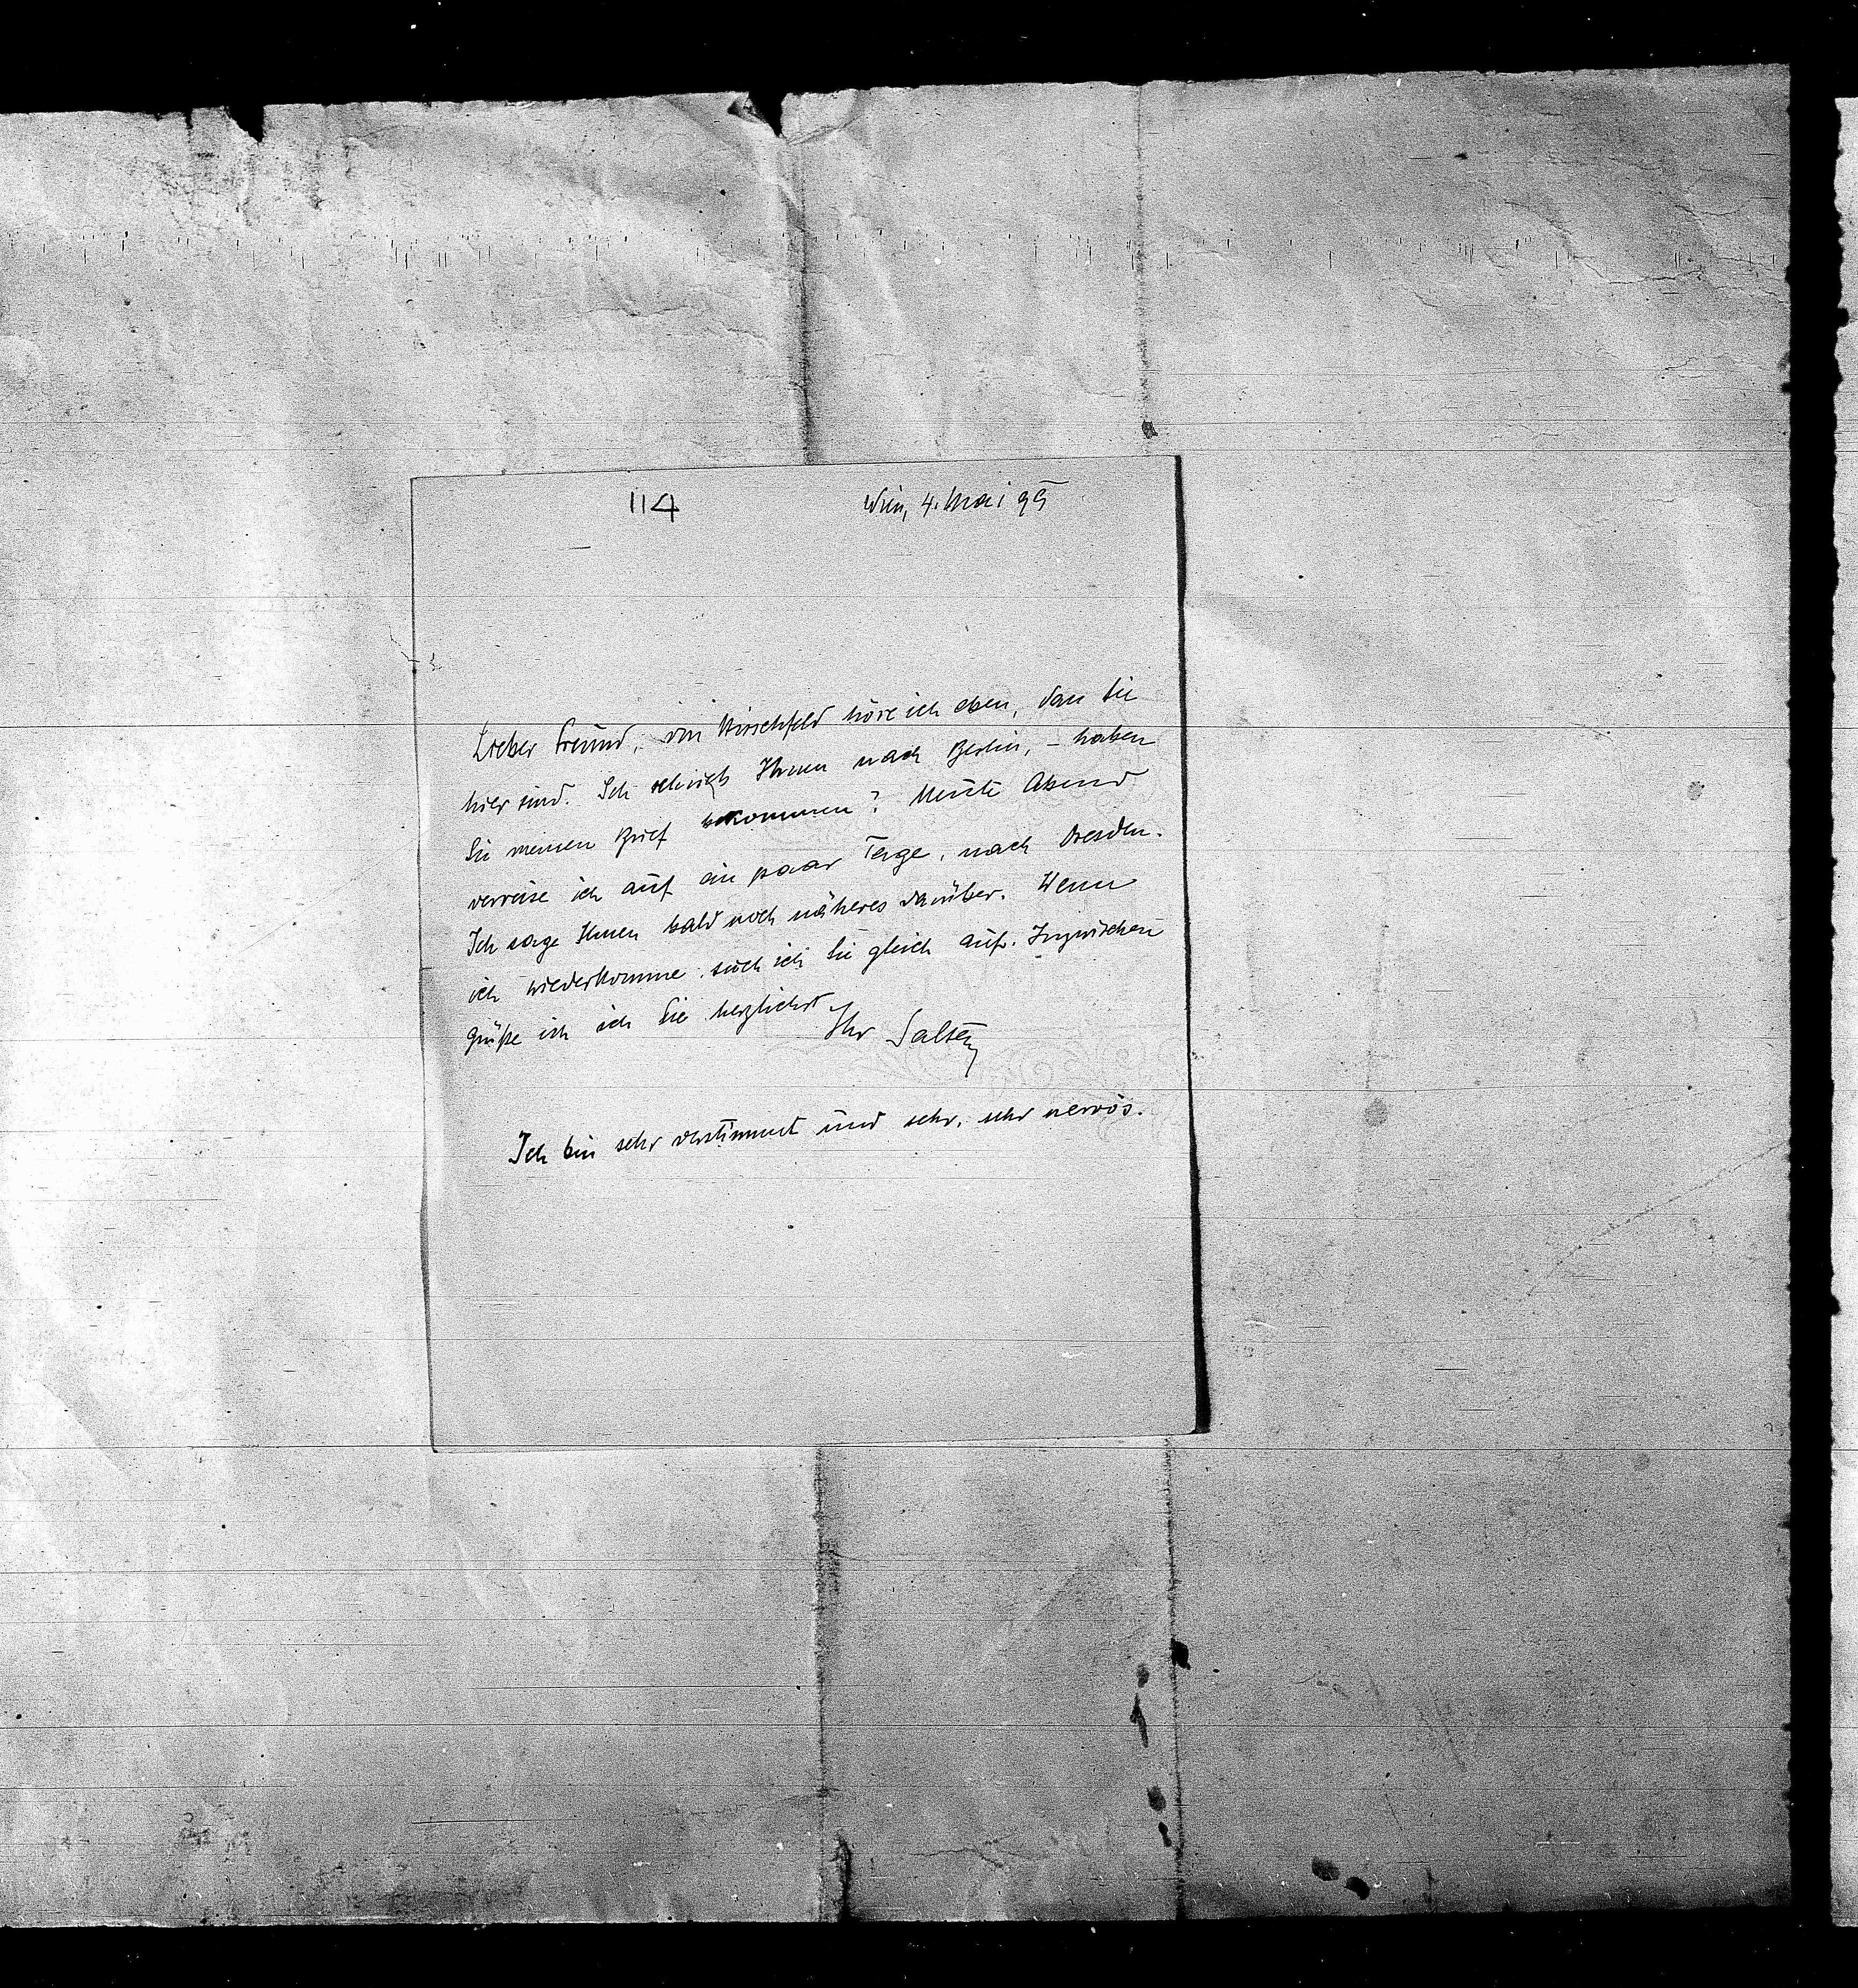 114
Wien, 4. Mai 99
Lieber Freund, von Hirschfeld höre ich eben, dass Sie
hier sind. Ich schrieb Ihnen nach Berlin, – haben
Sie meinen Brief bekommen? Heute Abend
verreise ich auf ein paar Tage, nach Dresden.
Ich sage Ihnen bald noch näheres darüber. Wenn
ich wiederkomme, such ich Sie gleich auf. Inzwischen
grüße ich Sie herzlichst
Ihr Salten
Ich bin sehr verstimmt und sehr, sehr nervös.